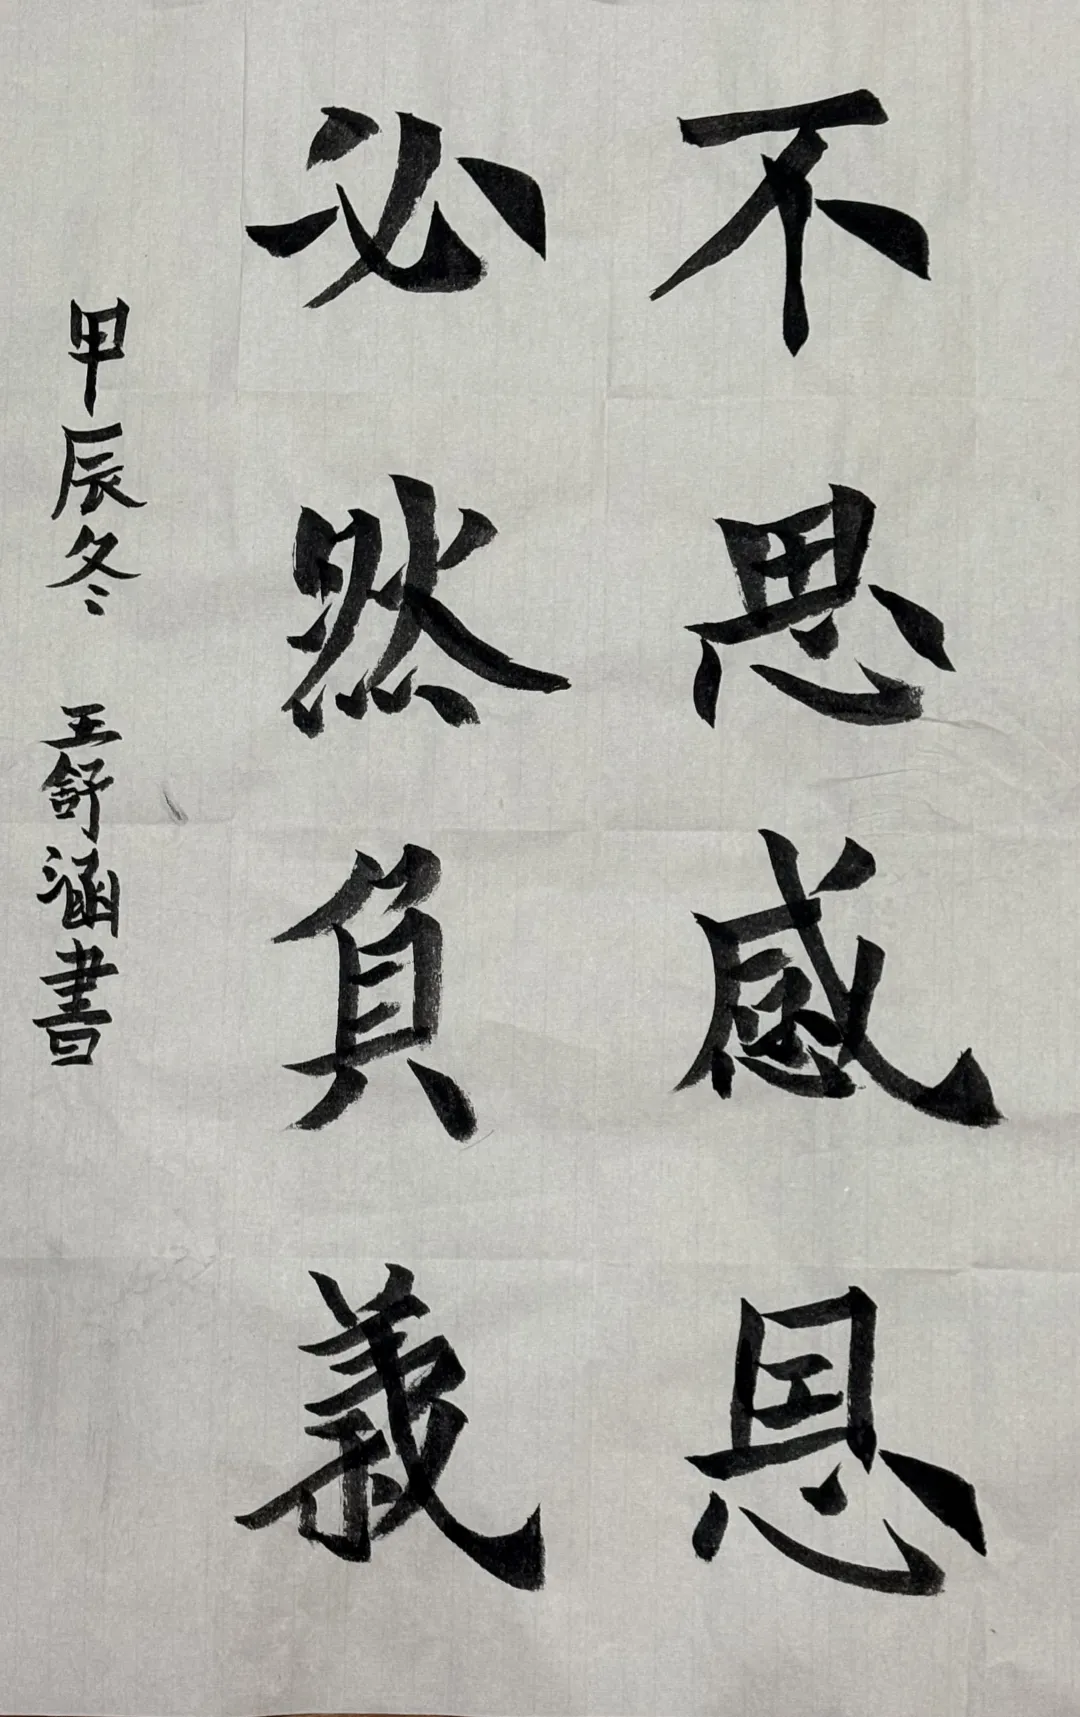 不思感恩
必然負義
甲辰冬 王舒涵書